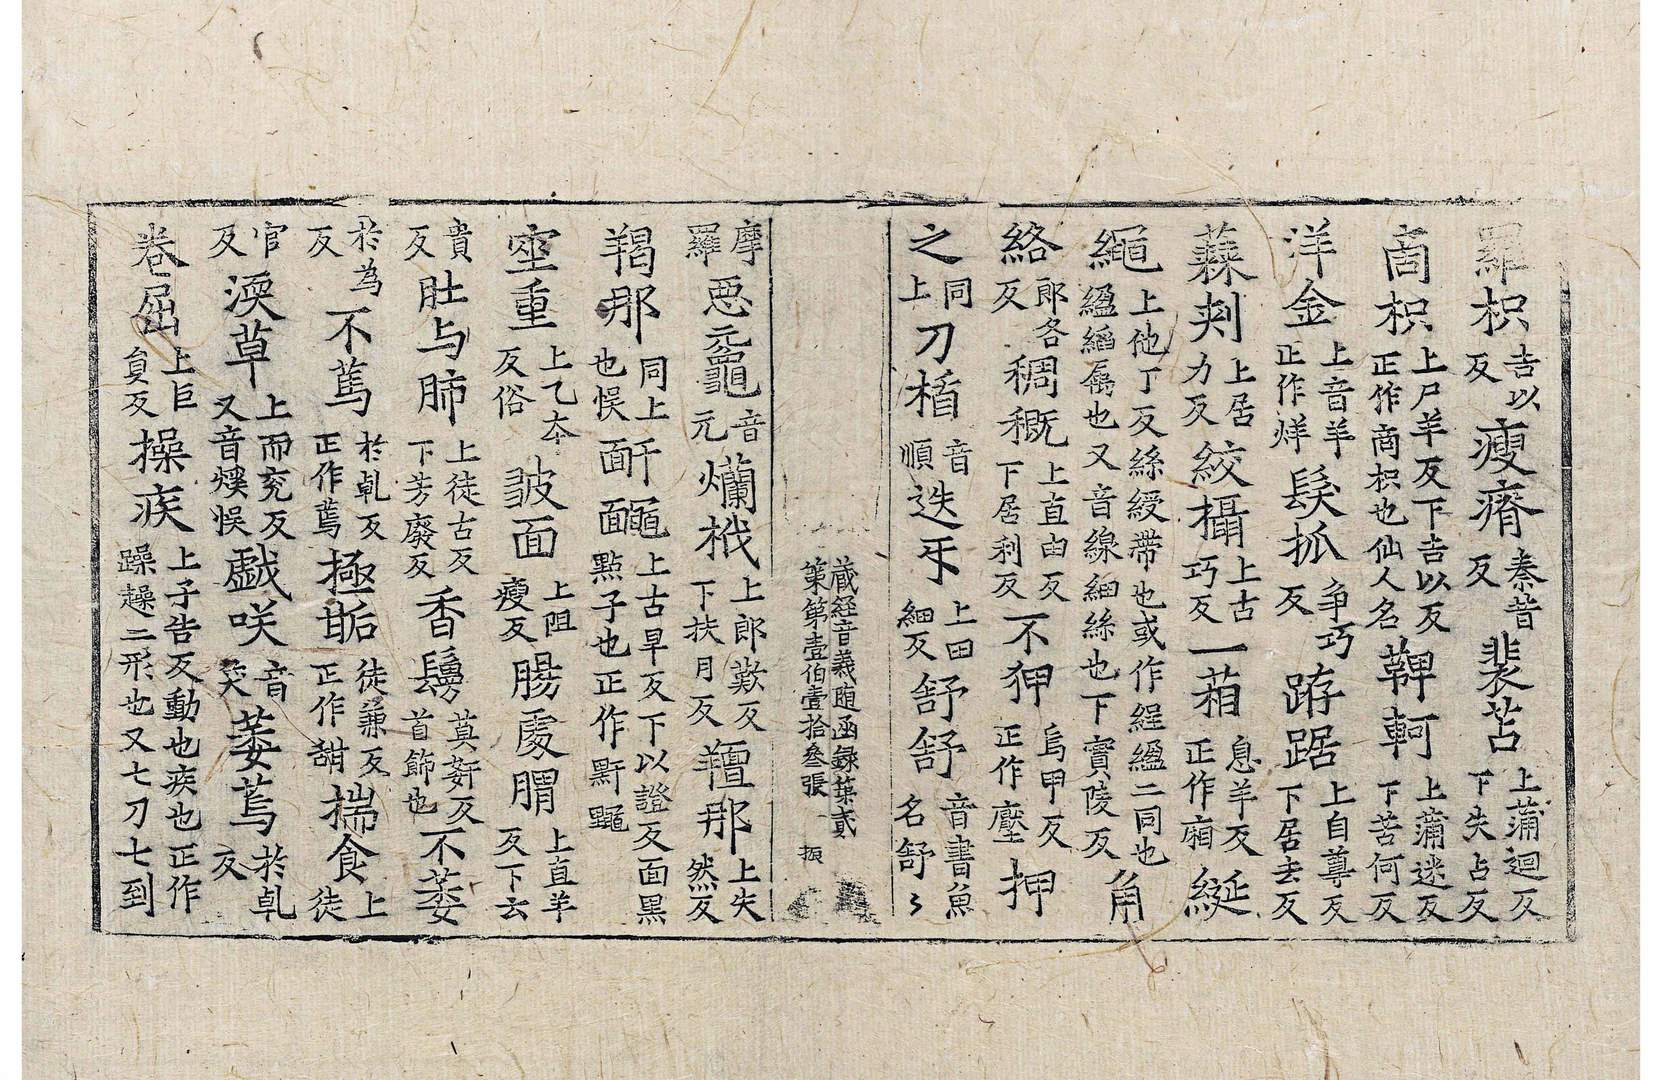 羅枳吉以反瘦瘠秦昔反裴苫上蒲迴反下失占反
啇枳上尸羊反下吉以反正作商枳也仙人名鞞軻上蒲迷反下苦何反
洋金上音羊正作烊髮抓爭巧反踤踞上自尊反下居去反
蕀刺上居力反絞攝上古巧反一葙息羊反正作廂綖
繩上他丁反絲綬帶也或作綎縕二同也縕縚屬也又音線細絲也下實陵反角
絡郎各反稠穊上直由反下居利反不狎烏甲反正作壓押
之同上刀楯音順迭㸦上田細反舒舒音書魚名舒〻
藏経音義随函録苐貳
苐第壹伯壹拾叁張 振
摩羅惡元鼉音元爛栰上郎歎反下扶月反羶那上失然反
羯那同上也悮面䵟䵴上古旱反下以證反面黑點子也正作䵟䵴
㘴重上乙夲反俗皷面上阻瘦反腸處䐔上直羊反下云
貴反肚与肺上徒古反下芳廢反香鬘莫姧反首飾也不萎
於為反不蔫於乹反正作蔫極甛徒兼反正作甜揣食上徒
官反渜草上而兖反又音煗悮戲咲音笑萎蔫於乹反
卷屈上巨貟反操疾上子告反動也疾也正作躁趮二形也又七刀七到